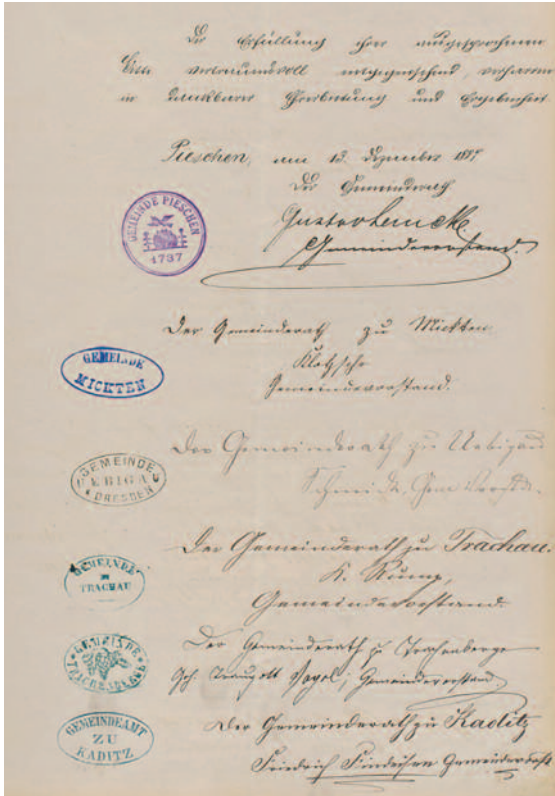 Der Erfüllung ihrer ausgesprochenen
Bitte vertrauensvoll entgegensehend, verharren
in dankbarer Ehrerbietung und Ergebenheit
Pieschen, am 13. Dezember 1887
Der Gemeinderath
Gemeindevorstand.
GEMEINDE PIESCHEN
1787
Der Gemeinderath zu Mickten
Klotzsche
Gemeindevorstand.
GEMEINDE
MICKTEN
Der Gemeinderath zu Uebigau
Schmidt, Gem
GEMEINDE
DRESDEN
Der Gemeinderath zu Trachau.
K.
Gemeindevorstand.
GEMEINDE
TRACHAU
Der Gemeinderath zu Trachenberge
Joh. Traugott Vogel, Gemeindevorstand
GEMEINDE
Der Gemeinderath zu Kaditz
Friedrich Findeisen
GEMEINDEAMT
ZU
KADITZ